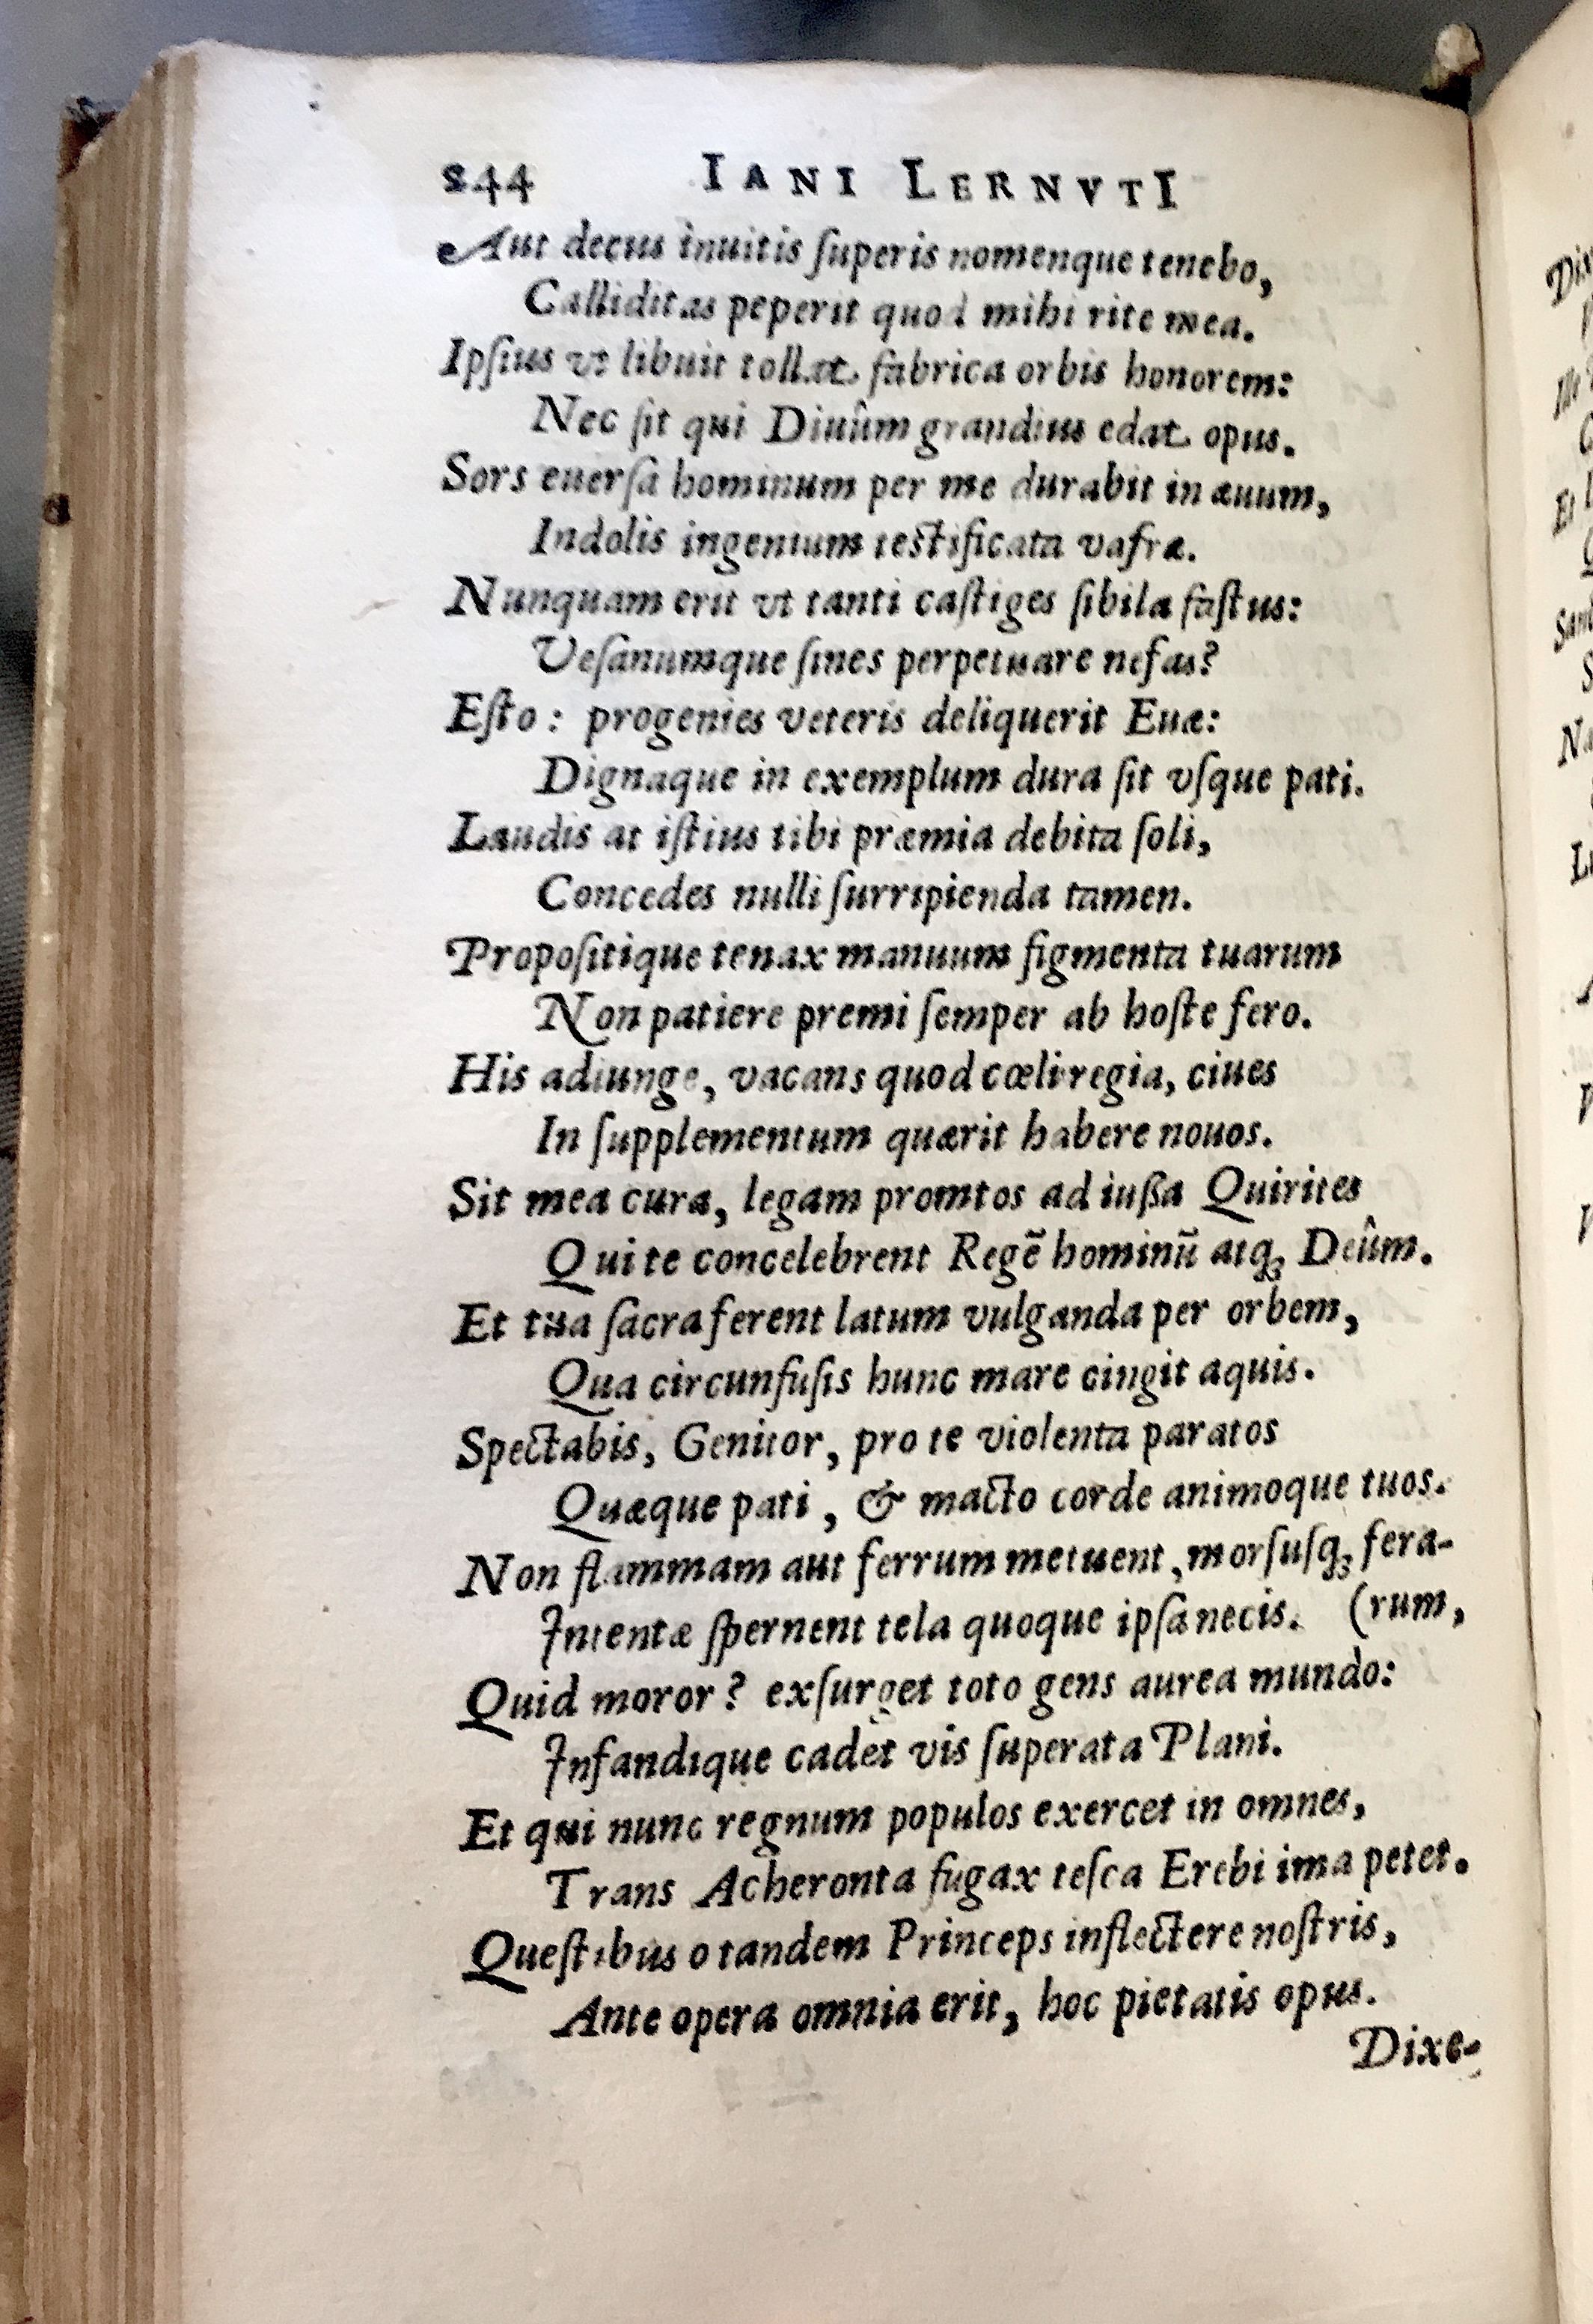 244 IANI LERNVTI
Aut decus inuitis ſuperis nomenque tenebo,
Calliditas peperit quod mihi rite mea.
Ipſius vt libuit tollat fabrica orbis honorem:
Nec ſit qui Diuûm grandius edat opus.
Sors euerſa hominum per me durabit in æuum,
Indolis ingenium teſtificata vafræ.
Nunquam erit vt tanti caſtiges ſibila faſtus:
Veſanumque ſines perpetuare nefas?
Eſto: progenies veteris deliquerit Euæ:
Dignaque in exemplum dura ſit vſque pati.
Laudis at iſtius tibi præmia debita ſoli,
Concedes nulli ſurripienda tamen.
Propoſitique tenax manuum figmenta tuarum
Non patiere premi ſemper ab hoſte fero.
His adiunge, vacans quod cœli regia, ciues
In ſupplementum quærit habere nouos.
Sit mea cura, legam promtos ad iuſſa Quirites
Qui te concelebrent Regē hominū atq; Deûm.
Et tua ſacra ferent latum vulganda per orbem,
Qua circunfuſis hunc mare cingit aquis.
Spectabis, Genitor, pro te violenta paratos
Quæque pati, & macto corde animoque tuos.
Non flammam aut ferrum metuent, morſuſq; fera-
Intentæ ſpernent tela quoque ipſa necis. (rum,
Quid moror? exſurget toto gens aurea mundo:
Infandique cadet vis ſuperata Plani.
Et qui nunc regnum populos exercet in omnes,
Trans Acheronta fugax teſca Erebi ima petet.
Queſtibus o tandem Princeps inflectere noſtris,
Ante opera omnia erit, hoc pietatis opus.
Dixe-